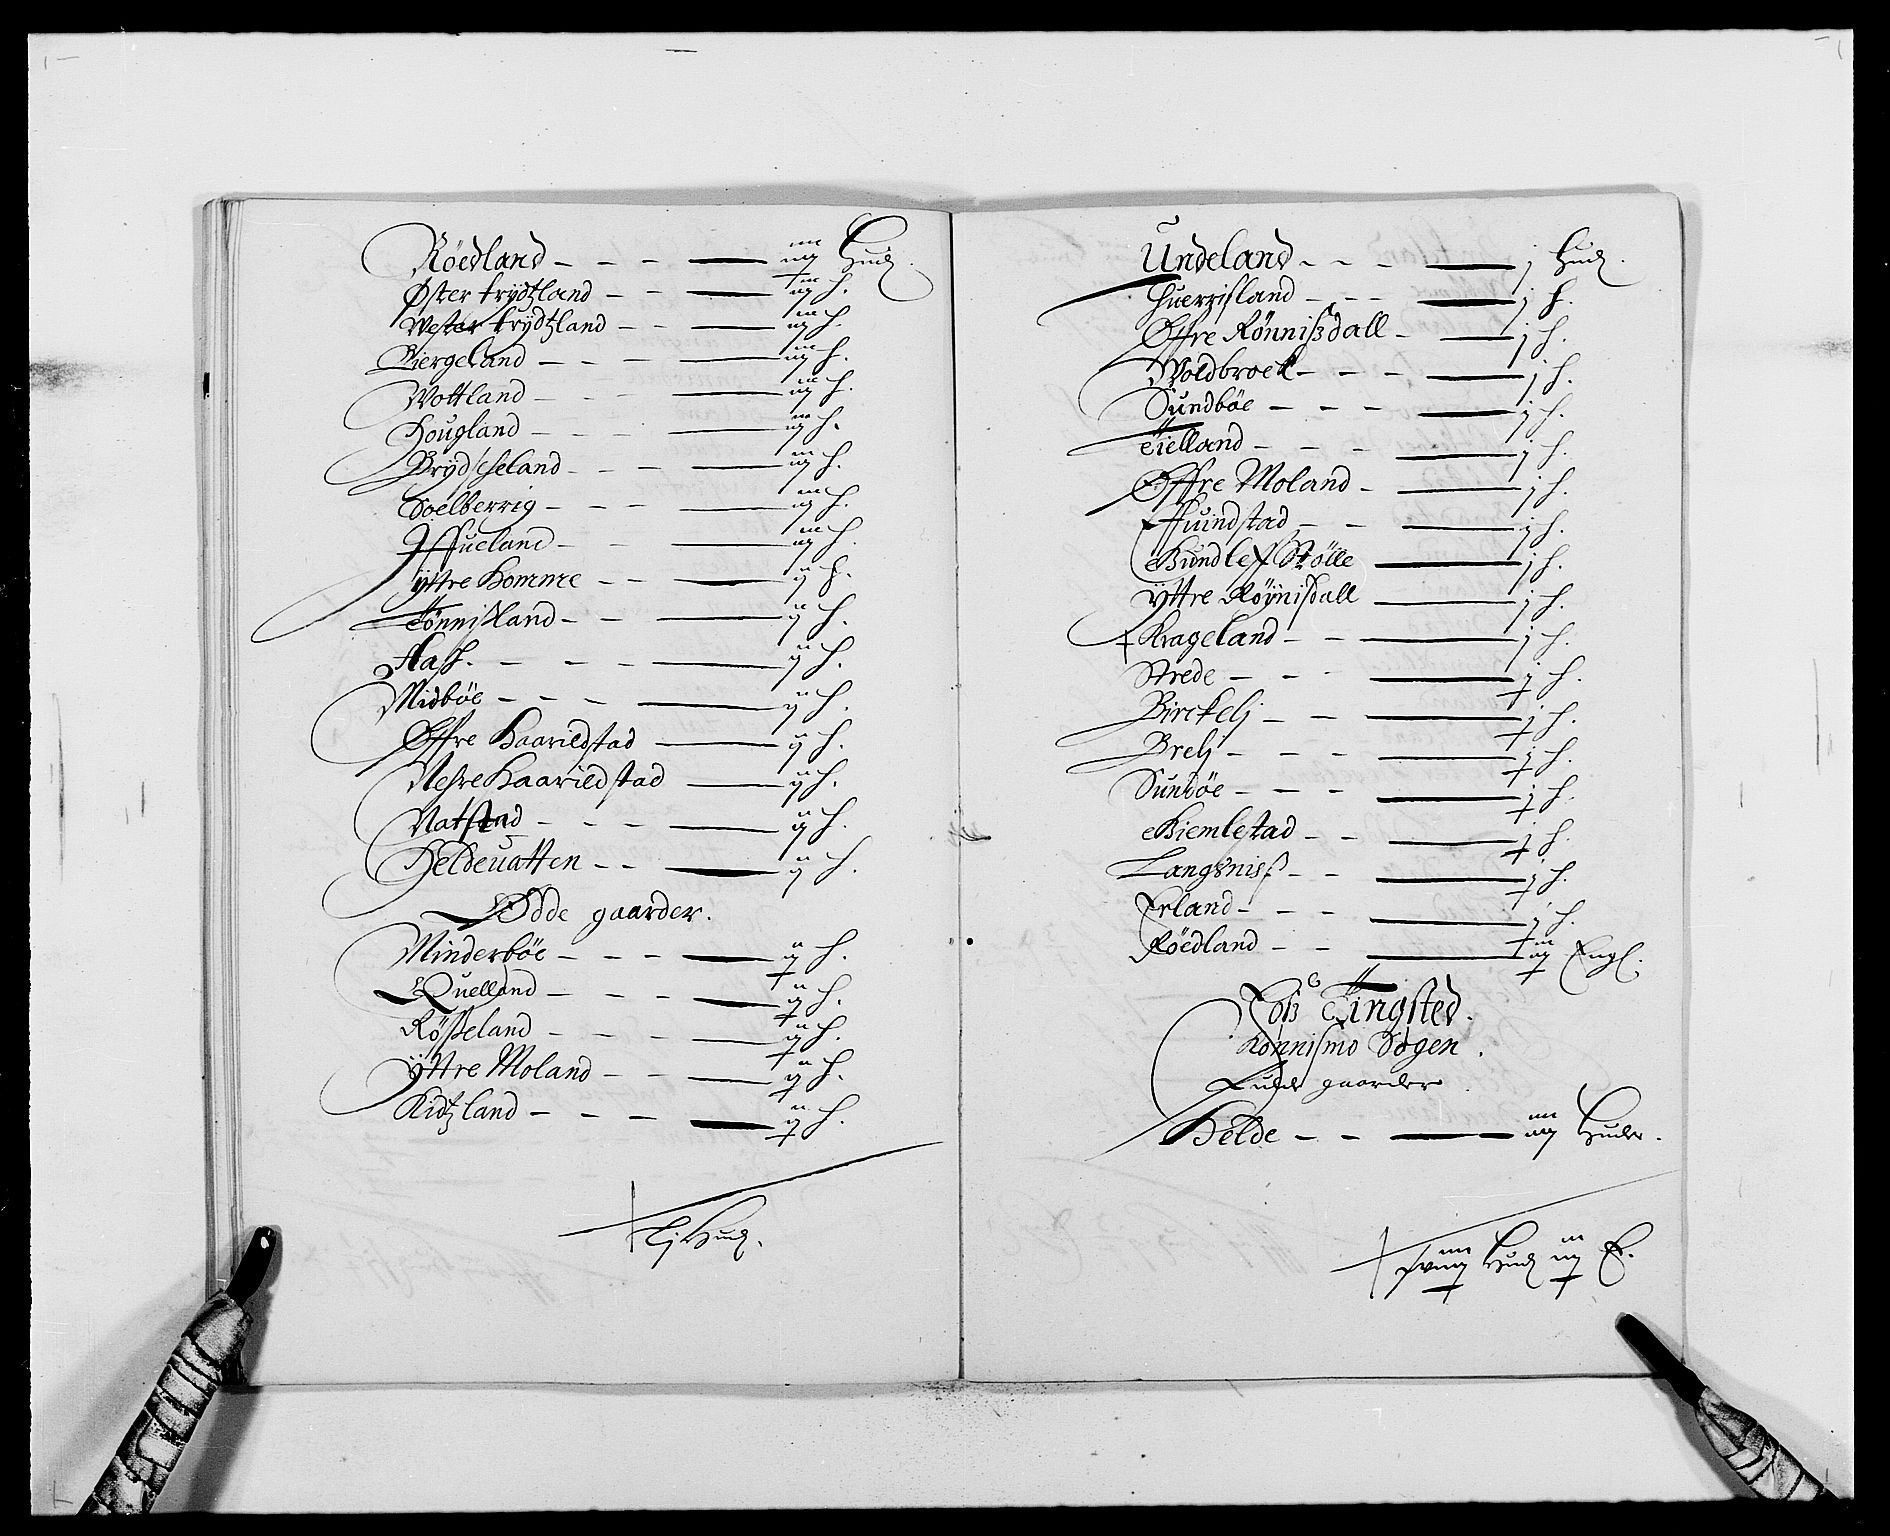 Röedland — — — — iiij Hud.
Øster Frydtzland — — — iij h.
Wester Frydtzland — — — iij h.
Biergeland — — — — iij h.
Wottland — — — — iij h.
Hougland — — — — iij h.
Brydscheland — — — — iij h.
Soelberrig — — — — iij h.
Iffueland — — — iij h.
Yttre Homme — — — ij h.
Tönnisland — — — ij h.
Aass. — — — — ij h.
Midböe — — — — ij h.
Øffre Haarildstad — ij h.
Nesre Haarildstad — ij h.
Natstad — — — — ij h.
Heldeuatten — — — ij h.
Ødde gaarder.
Minderböe — — — — ij h.
Quelland — — — — ij h.
Rösseland — — — — ij h.
Yttre Moland — — — ij h.
Kidtzland — — — — ij h.
Lj Hud.
Undeland — — — — j Hud.
Huerrisland — — — — j h.
Øffre Rönnisdall — — j h.
Woldbroek — — — — j h.
Sundböe — — — — j h.
Tielland — — — — j h.
Øffre Moland — — j h.
Ffuindstad — — — j h.
Gundlef Stölle — j h.
Yttre Röynisdall — j h.
Krageland — — — j h.
Strede — — — — j h.
Birckelj — — — j h.
Brelj — — — — j h.
Sunböe — — — — j h.
Giemlestad — — — j h.
Langeniss — — — j h.
Erland — — — — j h.
Röedland — — — iij Engl.
Foss Tingsted.
Rönnismo Sogen.
Fulde gaarder.
Helde — — — iiij Huder.
Hud iij E.